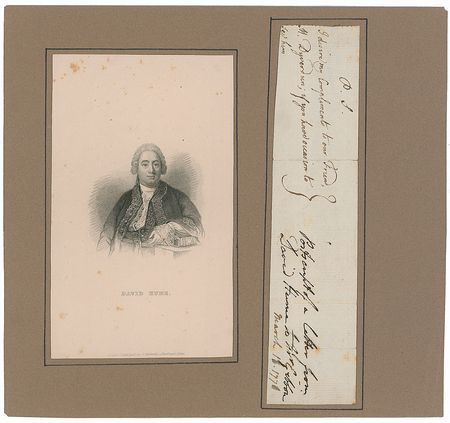 DAVID HUME.
P. S.
I desire my Compliments to our Friend,
M. Dyverdun; if you have occasion to
see him
Postscript of a letter from
David Hume to Gibbon
March 18. 1776